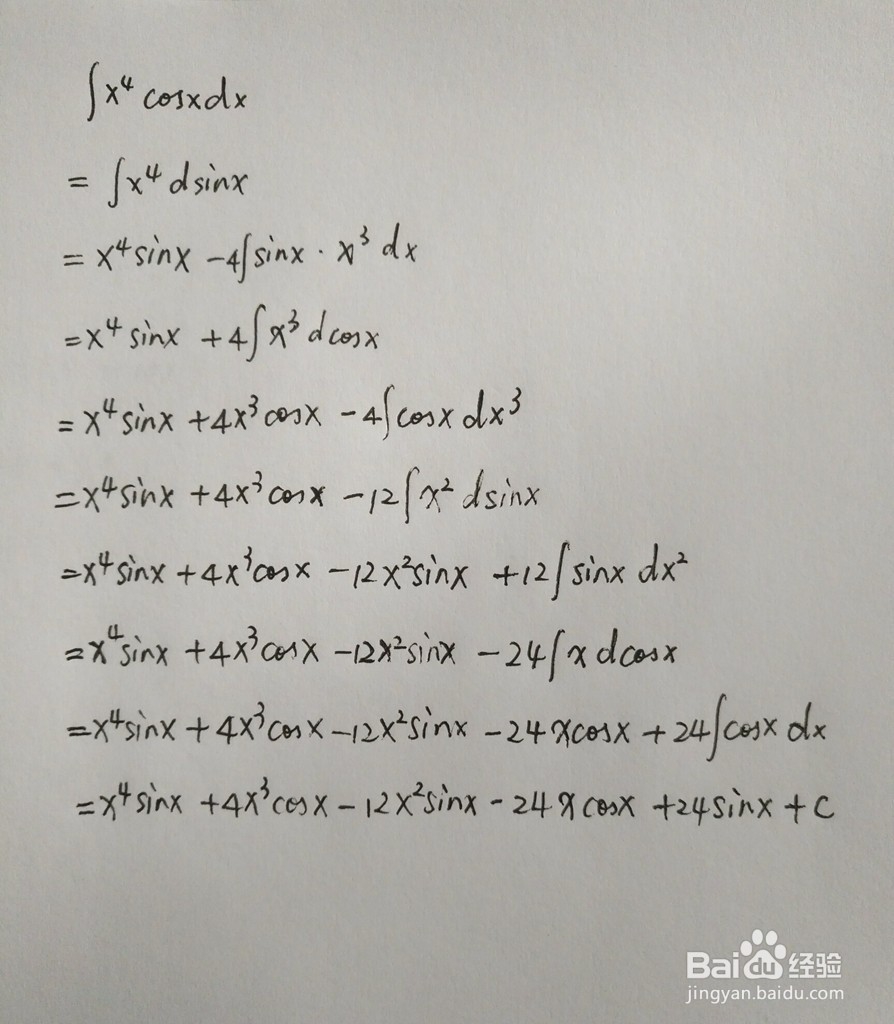 ∫x⁴ cosxdx
= ∫x⁴ dsinx
= x⁴sinx -4∫sinx · x³ dx
=x⁴ sinx +4∫x³ dcosx
= x⁴sinx +4x³cosx -4∫cosx dx³
=x⁴sinx +4x³cosx -12∫x² dsinx
=x⁴sinx +4x³cosx -12x²sinx +12∫sinx dx²
=x⁴sinx +4x³cosx -12x²sinx -24∫x dcosx
=x⁴sinx +4x³cosx -12x²sinx -24xcosx +24∫cosx dx
=x⁴sinx +4x³cosx -12x²sinx -24xcosx +24sinx +C
Baidu经验
jingyan.baidu.com